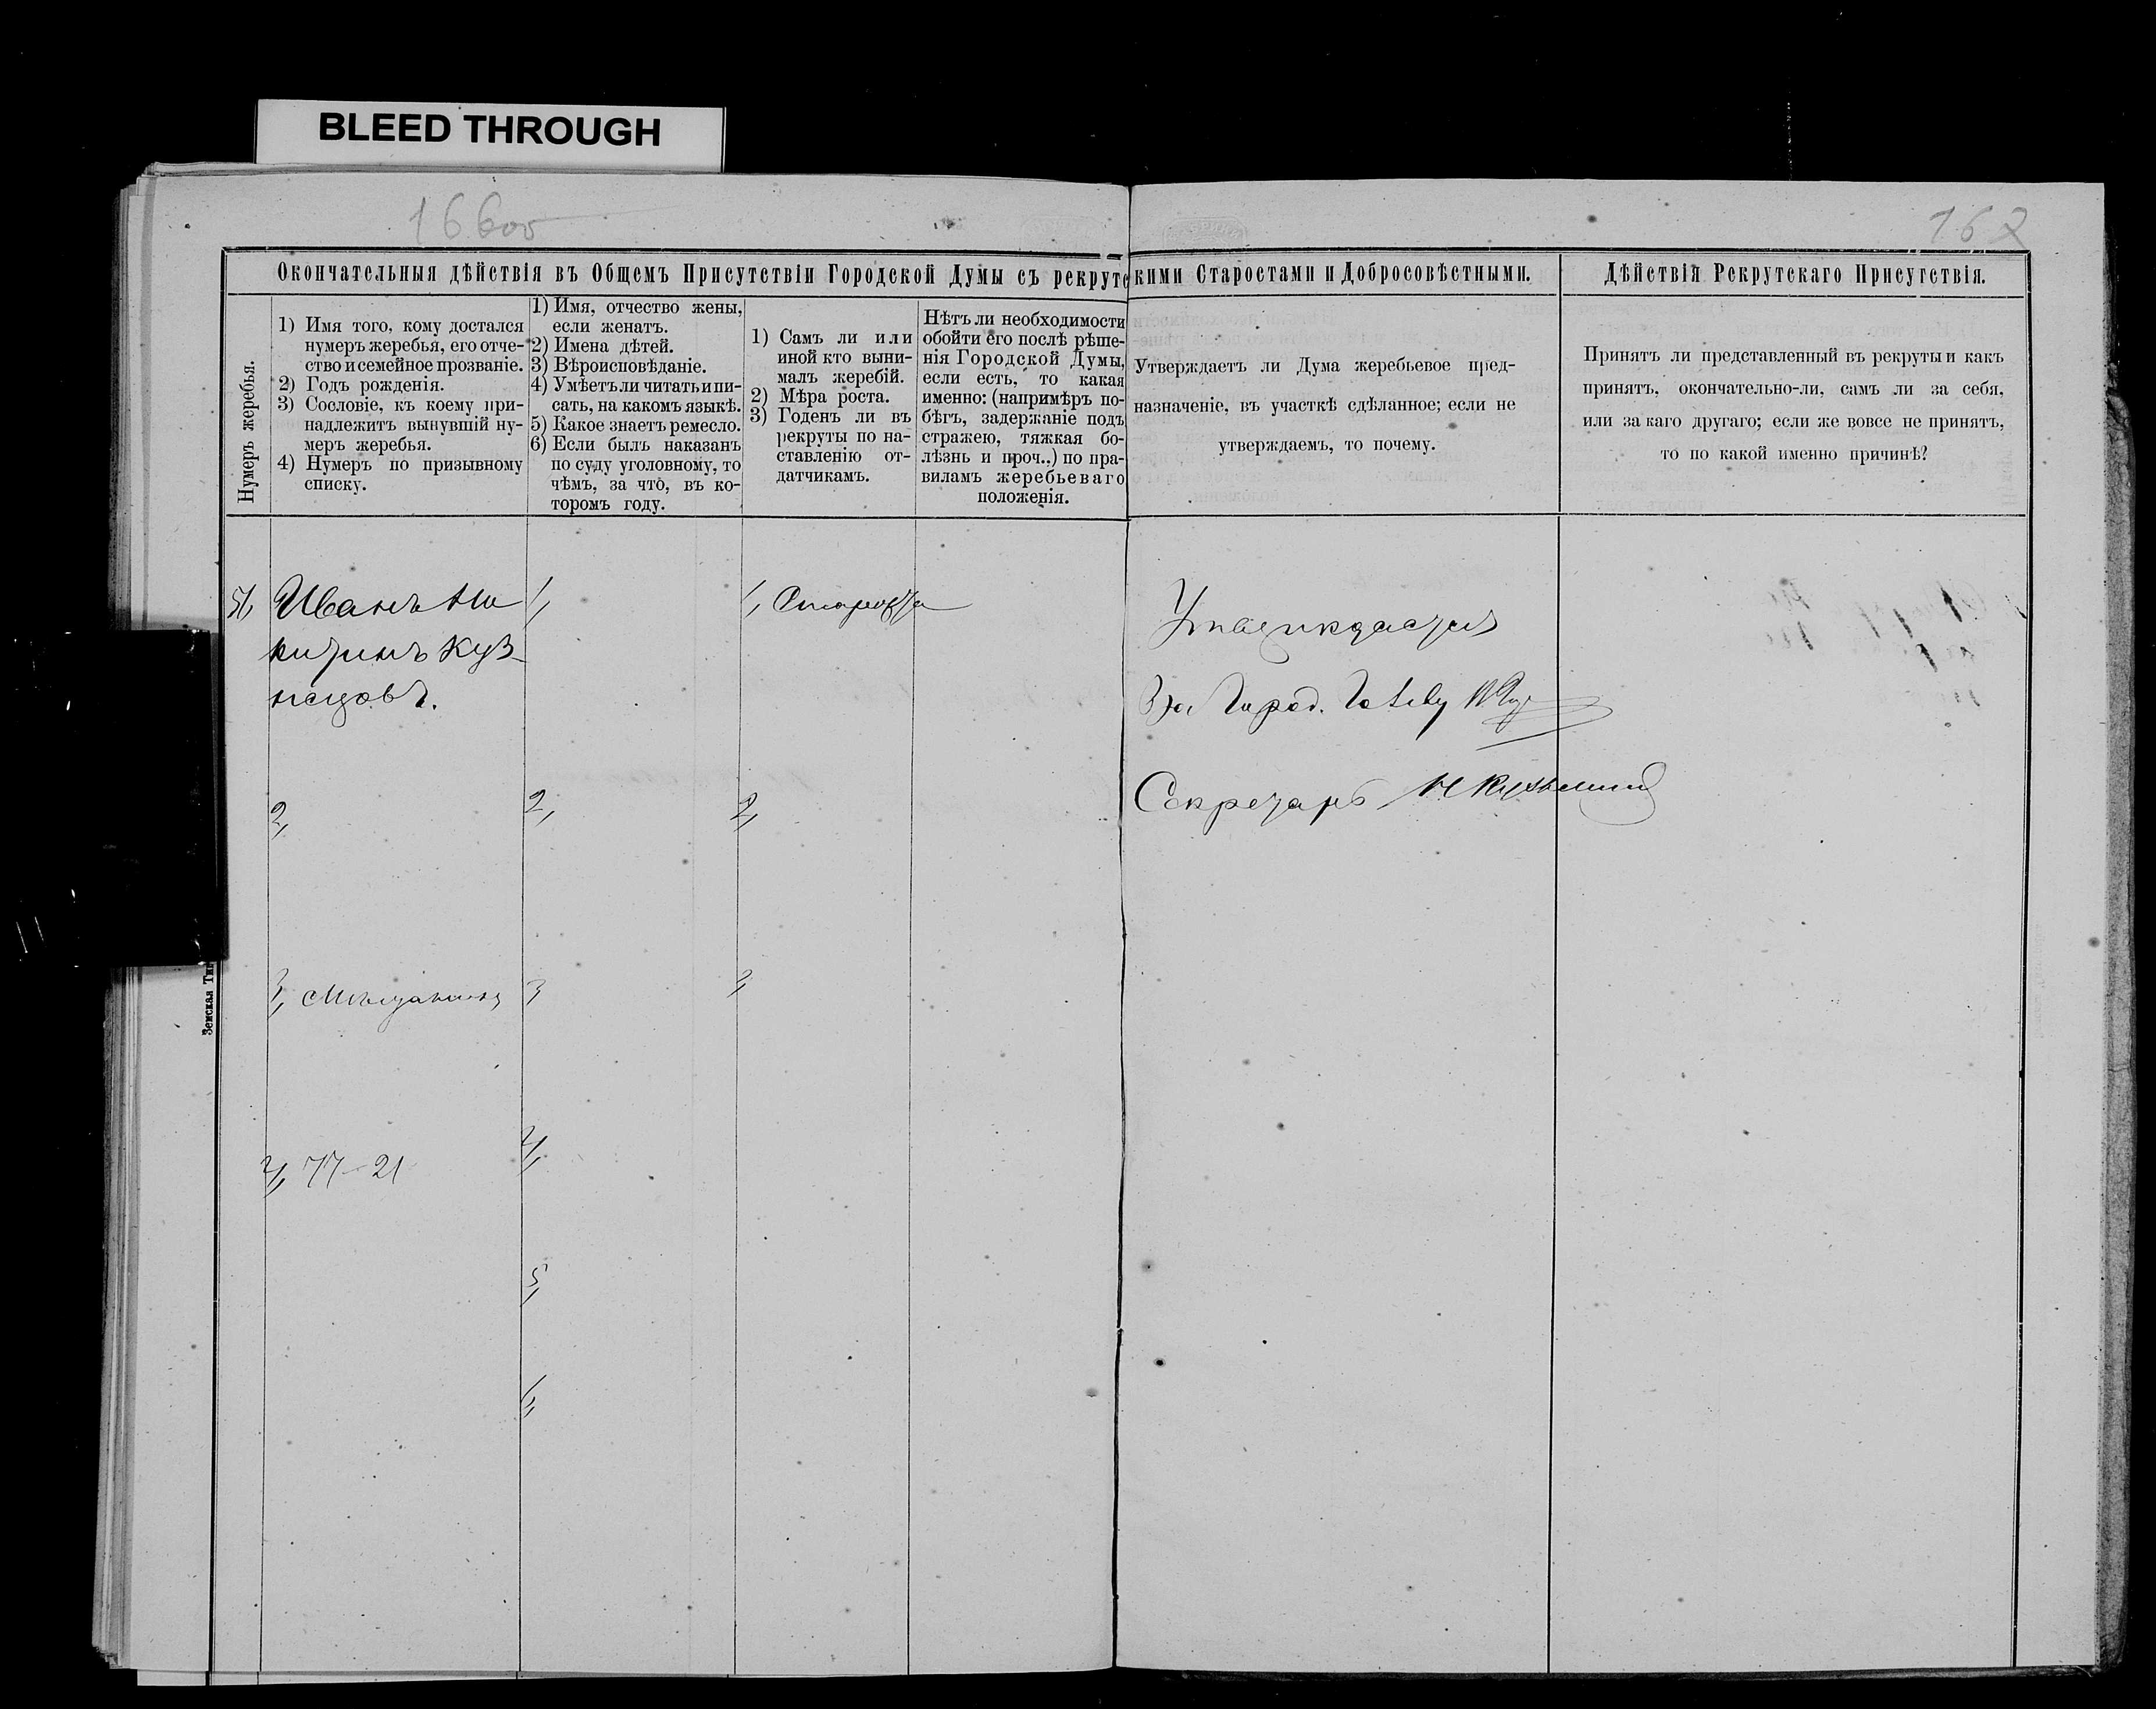 BLEED THROUGH
166об
167
Окончательныя дѣйствія въ Общемъ Присутствіи Городской Думы съ рекрутскими Старостами и Добросовѣстными.
Дѣйствія Рекрутскаго Присутствія.
Нумеръ жеребья.
1) Имя того, кому достался
нумеръ жеребья, его отче-
ство и семейное прозваніе.
2) Годъ рожденія.
3) Сословіе, къ коему при-
надлежитъ вынувшій ну-
меръ жеребья.
4) Нумеръ по призывному
списку.
1) Имя, отчество жены,
если женатъ.
2) Имена дѣтей.
3) Вѣроисповѣданіе.
4) Умѣетъ ли читать и пи-
сать, на какомъ языкѣ.
5) Какое знаетъ ремесло.
6) Если былъ наказанъ
по суду уголовному, то
чѣмъ, за что, въ ко-
торомъ году.
1) Самъ ли или
иной кто выни-
малъ жеребій.
2) Мѣра роста.
3) Годенъ ли въ
рекруты по на-
ставленію от-
датчикамъ.
Нѣтъ ли необходимости
обойти его послѣ рѣше-
нія Городской Думы,
если есть, то какая
именно: (напримѣръ по-
бѣгъ, задержаніе подъ
стражею, тяжкая бо-
лѣзнь и проч..) по пра-
виламъ жеребьеваго
положенія.
Утверждаетъ ли Дума жеребьевое пред-
назначеніе, въ участкѣ сдѣланное; если не
утверждаемъ, то почему.
Принятъ ли представленный въ рекруты и какъ
принятъ, окончательно-ли, самъ ли за себя,
или за каго другаго; если же вовсе не принятъ,
то по какой именно причинѣ?
51, Иванъ Ни
китинъ Куз-
нецовъ.
2,
3, Мѣщанинъ
4, 77-21
1,
2,
3
4,
5,
6,
1, Староста
2,
3,
Утверждается
За Город. Голову
Секретарь Н Кузьминъ
Земская Тип